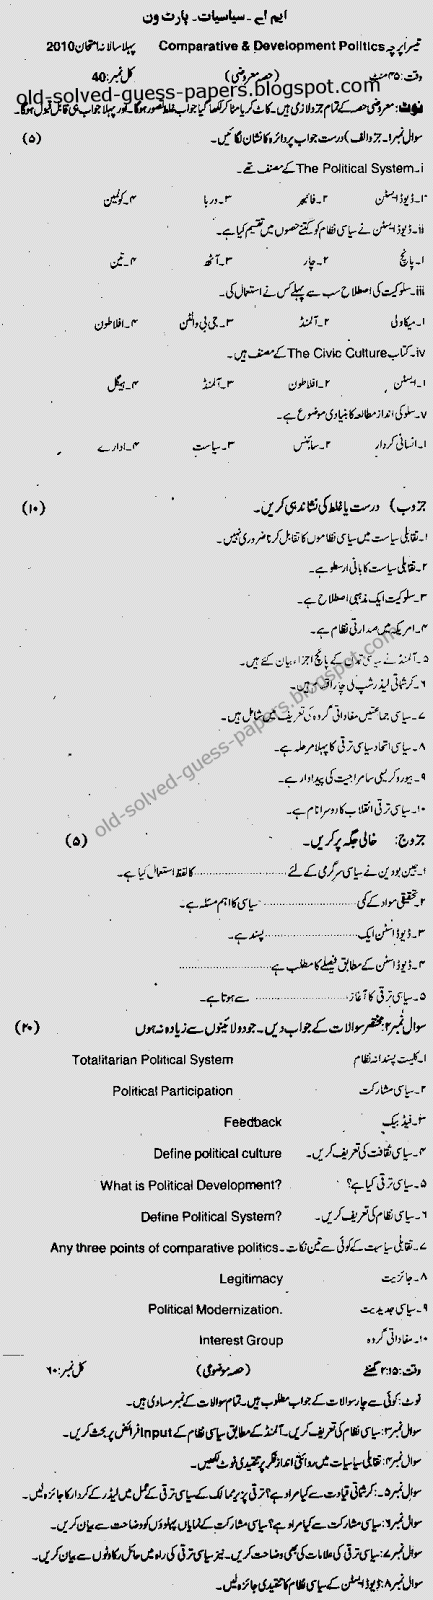 ایم اے۔ سیاسیات۔ پارٹ ون
تیسرا پرچہ Comparative & Development Politics پہلا سالانہ امتحان 2010
وقت: ۴۵ منٹ (حصہ معروضی) کل نمبر: 40
old-solved-guess-papers.blogspot.com
نوٹ: معروضی حصہ کے تمام جزو لازمی ہیں۔ کاٹ کر یا مٹا کر لکھا گیا جواب غلط تصور ہوگا۔ اور پہلا جواب ہی قابل قبول ہوگا۔
سوال نمبر۱۔ جزو الف) درست جواب پر دائرہ کا نشان لگائیں۔ (۵)
i۔ The Political System کے مصنف تھے۔
۱۔ ڈیوڈ ایسٹن ۲۔ فائبر ۳۔ دربا ۴۔ کولمین
ii۔ ڈیوڈ ایسٹن نے سیاسی نظام کو کتنے حصوں میں تقسیم کیا ہے۔
۱۔ پانچ ۲۔ چار ۳۔ آٹھ ۴۔ تین
iii۔ سلوکیت کی اصطلاح سب سے پہلے کس نے استعمال کی۔
۱۔ میکاولی ۲۔ آلمنڈ ۳۔ جی بی واٹسن ۴۔ افلاطون
iv۔ کتاب The Civic Culture کے مصنف ہیں۔
۱۔ ایسٹن ۲۔ افلاطون ۳۔ آلمنڈ ۴۔ ہیگل
v۔ سلوکی انداز مطالعہ کا بنیادی موضوع ہے۔
۱۔ انسانی کردار ۲۔ سائنس ۳۔ سیاست ۴۔ ادارے
جزو ب) درست یا غلط کی نشاندہی کریں۔ (۱۰)
۱۔ تقابلی سیاست میں سیاسی نظاموں کا تقابل کرنا ضروری نہیں۔
۲۔ تقابلی سیاست کا بانی ارسطو ہے۔
۳۔ سلوکیت ایک مذہبی اصطلاح ہے۔
۴۔ امریکہ میں صدارتی نظام ہے۔
۵۔ آلمنڈ نے سیاسی تمدن کے پانچ اجزاء بیان کئے ہیں۔
۶۔ کرشماتی لیڈر شپ کی چار اقسام ہیں۔
۷۔ سیاسی جماعتیں مفاداتی گروہ کی تعریف میں شامل ہیں۔
۸۔ سیاسی اتحاد سیاسی ترقی کا پہلا مرحلہ ہے۔
۹۔ بیوروکریسی سامراجیت کی پیداوار ہے۔
۱۰۔ سیاسی ترقی انقلاب کا دوسرا نام ہے۔
old-solved-guess-papers.blogspot.com
جزو ج: خالی جگہ پر کریں۔ (۵)
۱۔ جین بودین نے سیاسی سرگرمی کے لئے .................... کا لفظ استعمال کیا ہے۔
۲۔ تحقیقی مواد کے کمی .................... سیاسی کا اہم مسئلہ ہے۔
۳۔ ڈیوڈ اسٹن ایک .................... پسند ہے۔
۴۔ ڈیوڈ اسٹن کے مطابق فیصلے کا مطلب ہے ....................
۵۔ سیاسی ترقی کا آغاز .................... سے ہوتا ہے۔
سوال نمبر۲: مختصر سوالات کے جواب دیں۔ جو دو لائینوں سے زیادہ نہ ہوں (۲۰)
۱۔ کلیت پسندانہ نظام Totalitarian Political System
۲۔ سیاسی مشارکت Political Participation
۳۔ فیڈ بیک Feedback
۴۔ سیاسی ثقافت کی تعریف کریں۔ Define political culture
۵۔ سیاسی ترقی کیا ہے؟ What is Political Development?
۶۔ سیاسی نظام کی تعریف کریں۔ Define Political System?
۷۔ تقابلی سیاست کے کوئی سے تین نکات۔ Any three points of comparative politics
۸۔ جائزیت Legitimacy
۹۔ سیاسی جدیدیت Political Modernization.
۱۰۔ مفاداتی گروہ Interest Group
وقت: ۲:۱۵ گھنٹے (حصہ موضوعی) کل نمبر: ۶۰
نوٹ: کوئی سے چار سوالات کے جواب مطلوب ہیں۔ تمام سوالات کے نمبر مساوی ہیں۔
سوال نمبر۳: سیاسی نظام کی تعریف کریں۔ آلمنڈ کے مطابق سیاسی نظام کے Input فرائض پر بحث کریں۔
سوال نمبر۴: تقابلی سیاسیات میں روائتی انداز فکر پر تنقیدی نوٹ لکھیں۔
سوال نمبر۵: کرشماتی قیادت سے کیا مراد ہے؟ ترقی پزیر ممالک کے سیاسی ترقی کے عمل میں لیڈر کے کردار کا جائزہ لیں۔
سوال نمبر۶: سیاسی مشارکت سے کیا مراد ہے؟ سیاسی مشارکت کے نمایاں پہلوؤں کو وضاحت سے بیان کریں۔
سوال نمبر۷: سیاسی ترقی کی علامات کی بھی وضاحت کریں۔ نیز سیاسی ترقی کی راہ میں حائل رکاوٹوں سے بیان کریں۔
سوال نمبر۸: ڈیوڈ ایسٹن کے سیاسی نظام کا تنقیدی جائزہ لیں۔